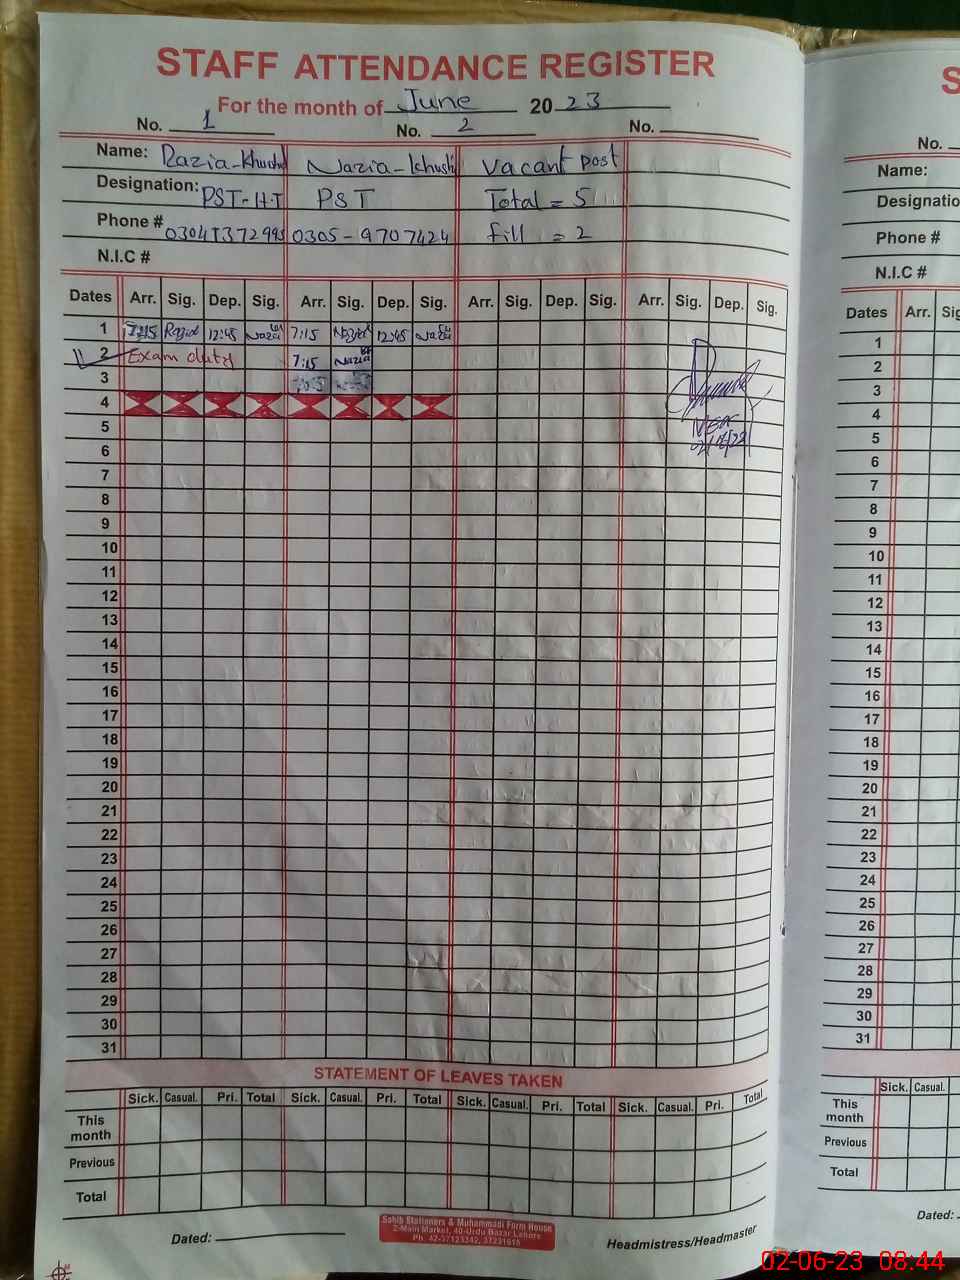 STAFF ATTENDANCE REGISTER
For the month of June 2023
No. 1 No. 2 No.
Name: Razia-Khushi Nazia-Khushi Vacant post
Designation: PST-H.T PST Total = 5
Phone # 0305-9707424 fill = 2
N.I.C #
Dates Arr. Sig. Dep. Sig. Arr. Sig. Dep. Sig. Arr. Sig. Dep. Sig. Arr. Sig. Dep. Sig.
1 7:15 Razia 12:45 Nazia 7:15 Nazia 12:45 Nazia
2 Exam duty 7:15 Nazia
3
4
5
6
7
8
9
10
11
12
13
14
15
16
17
18
19
20
21
22
23
24
25
26
27
28
29
30
31
STATEMENT OF LEAVES TAKEN
Sick. Casual. Pri. Total Sick. Casual. Pri. Total Sick. Casual. Pri. Total Sick. Casual. Pri. Total
This month
Previous
Total
Dated:
Sahib Stationers & Muhammadi Form House
2-Main Market, 40-Urdu Bazar Lahore
Ph. 42-37123342, 37231615
Headmistress/Headmaster
S
No.
Name:
Designatio
Phone #
N.I.C #
Dates Arr. Sig
1
2
3
4
5
6
7
8
9
10
11
12
13
14
15
16
17
18
19
20
21
22
23
24
25
26
27
28
29
30
31
Sick. Casual.
This month
Previous
Total
Dated:
02-06-23 08:44